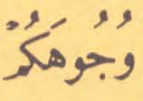 وُجُوهَكُمْ